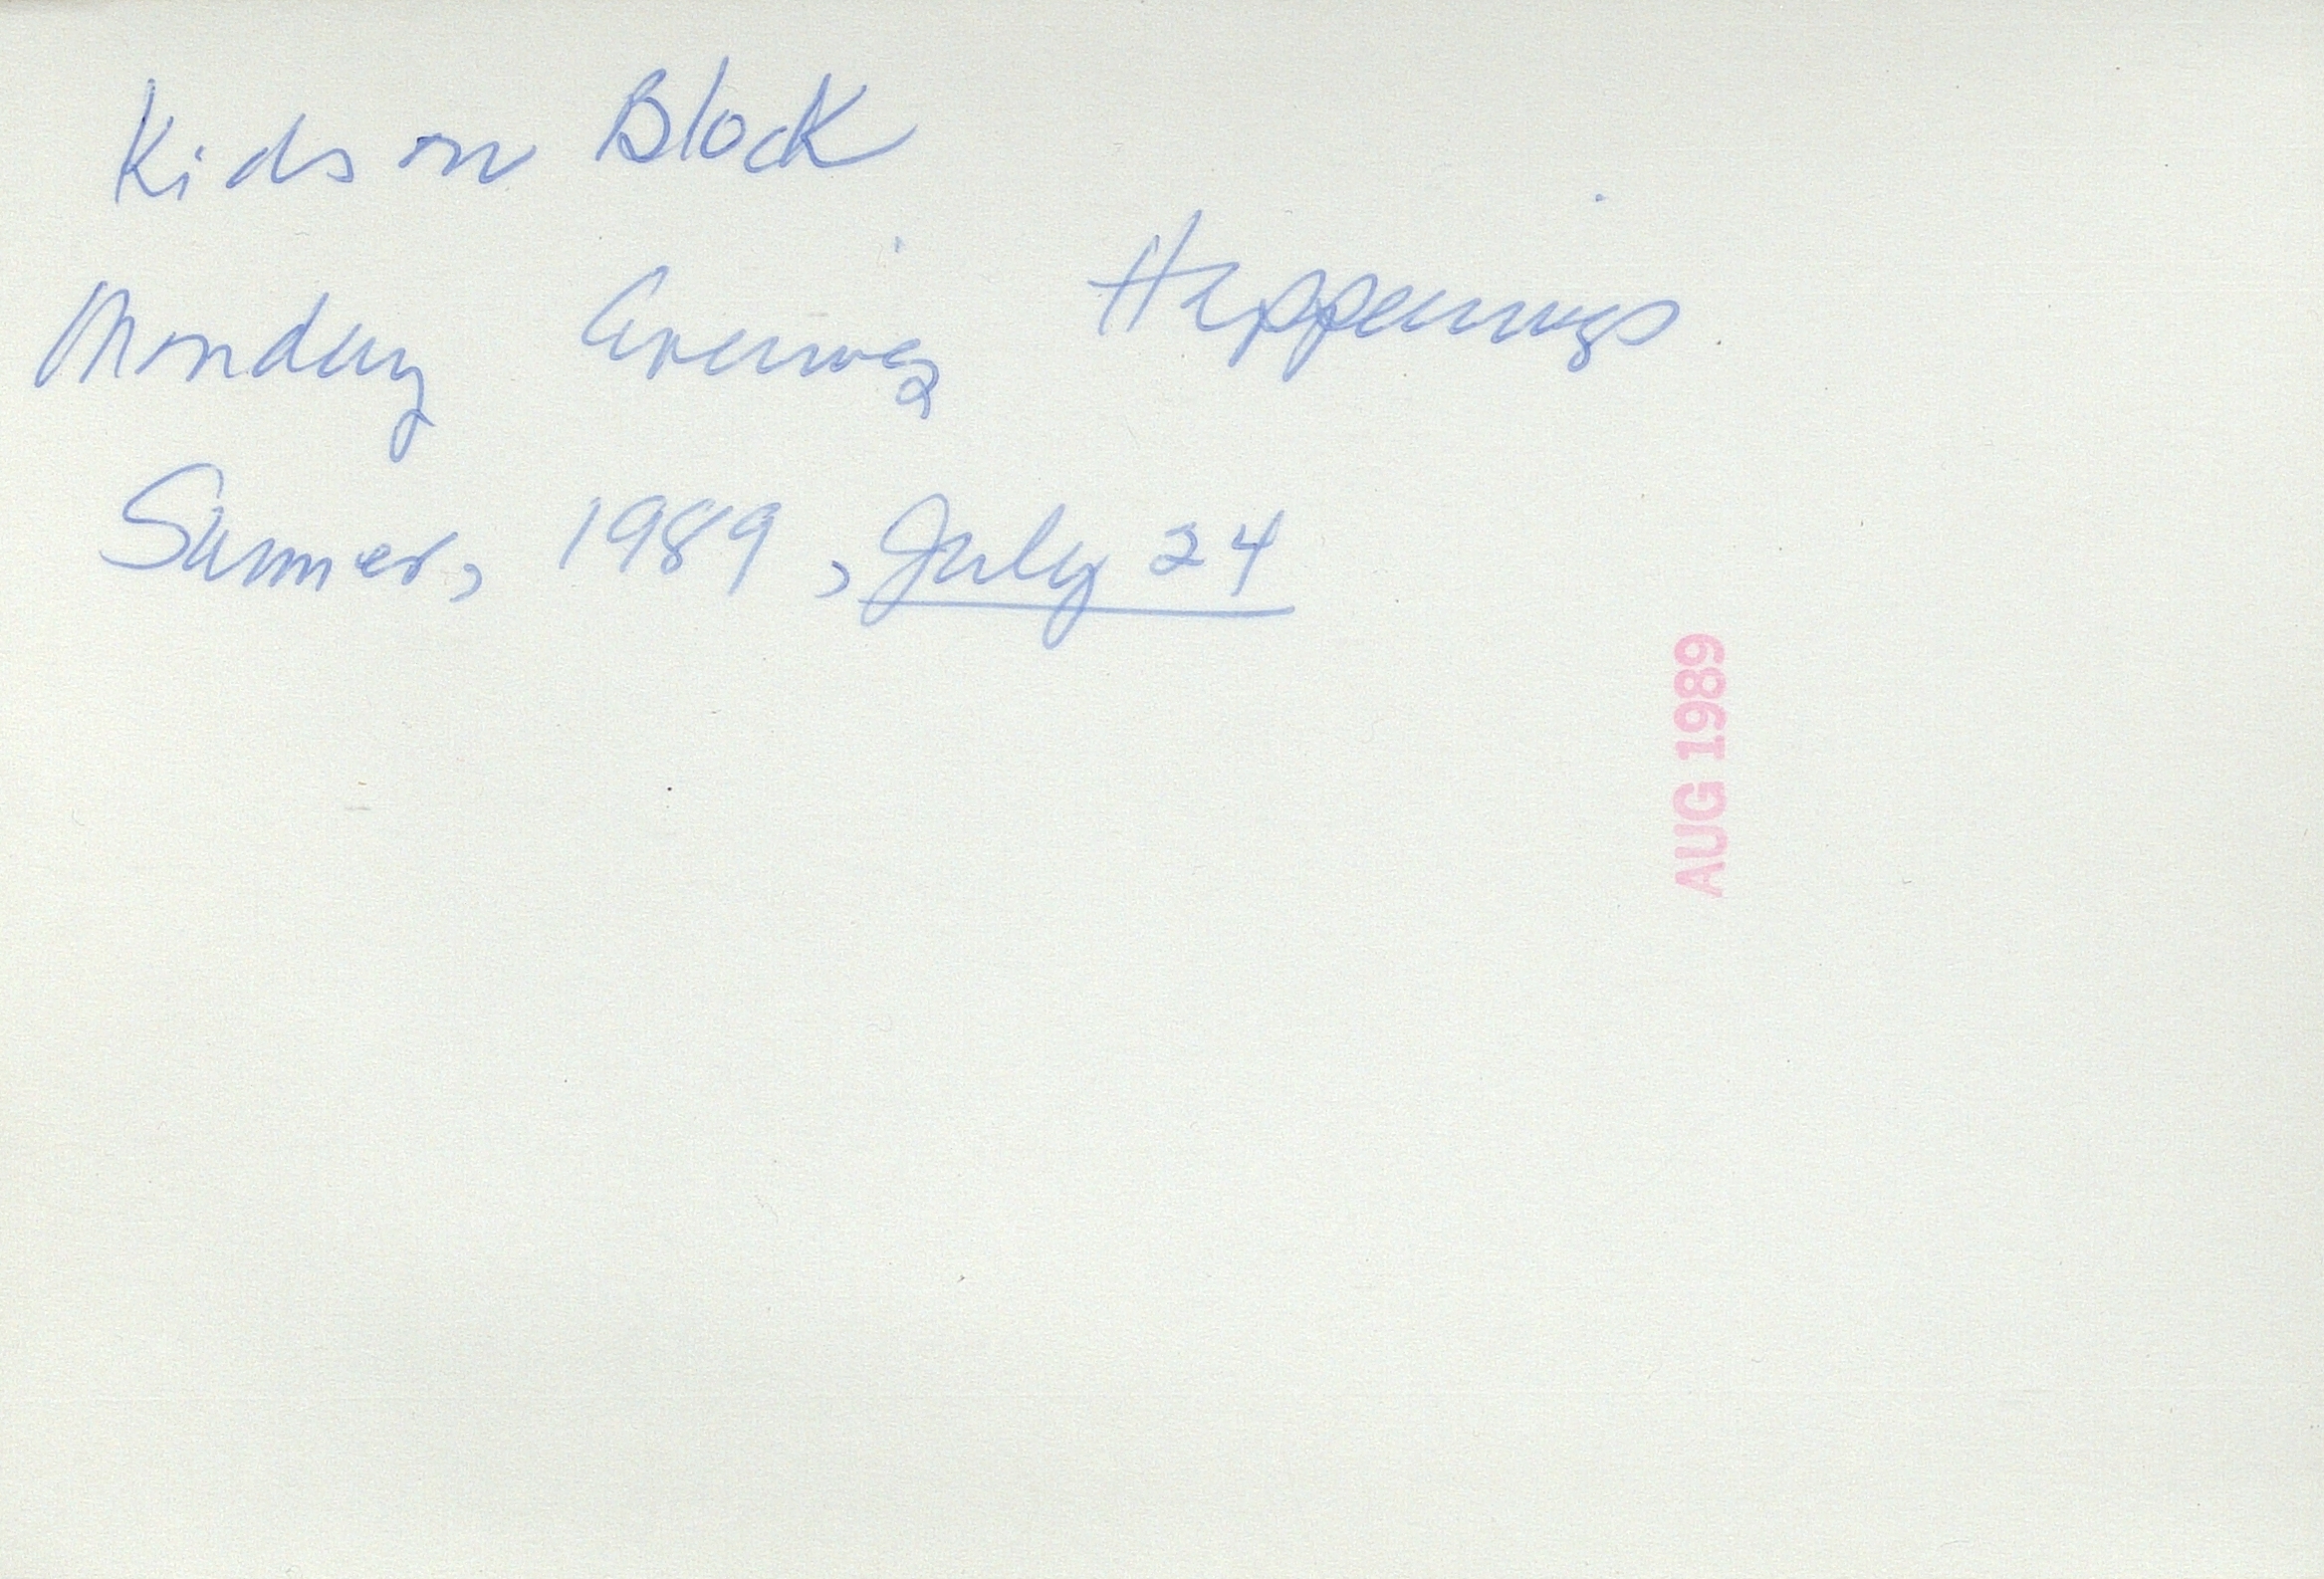 Kids on Block
Monday Evening Happenings
Summer, 1989, July 24
AUG 1989